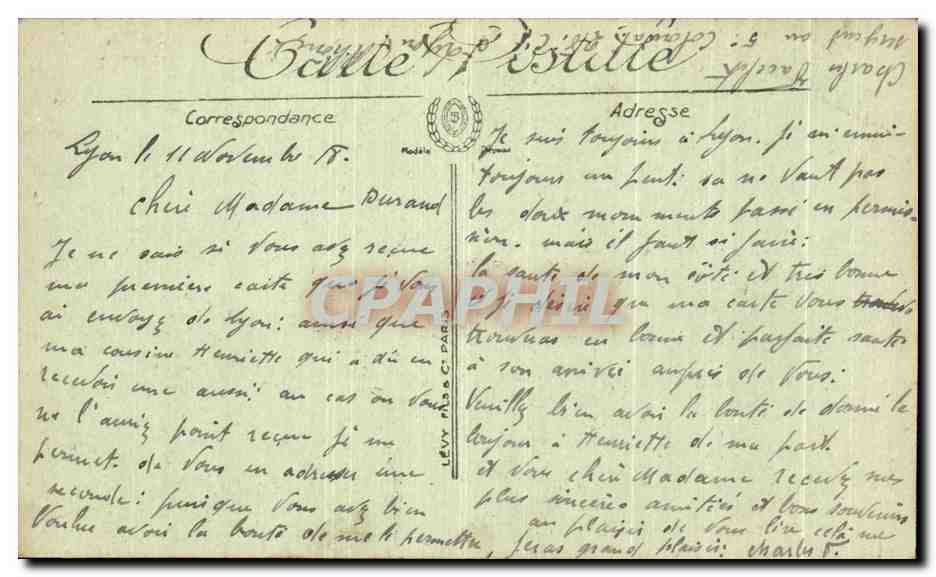 Carte Postale
Correspondance
Adresse
Lyon le 11 Novembre 18.
chère Madame Durand
Je ne sais si vous avez reçue
ma première carte que je vous
ai envoyez de Lyon: ainsi que
ma cousine Henriette qui a dû en
recevoir une aussi: au cas où vous
ne l'auriez point reçue je me
permet de vous en adresser une
seconde: puisque vous avez bien
voulue avoir la bonté de me le permettre,
Je suis toujours à Lyon. Je m'ennui-
toujours un peut: sa ne vaut pas
les doux moments passé en permis-
sion. mais il faut si faire:
la santé de mon côté et très bonne
et je désire que ma carte vous
trouveras en bonne et parfaite santée
à son arrivée auprès de vous:
Veuillez bien avoir la bonté de donné le
bonjour à Henriette de ma part.
et vous chère Madame recevez mes
plus sincères amitiés et bons souvenirs
au plaisir de vous lire cela me
feras grand plaisir: Charles F.
Charles
sergent au 5e Colonial
Modèle
LÉVY FILS & Cie PARIS
CPAPHIL